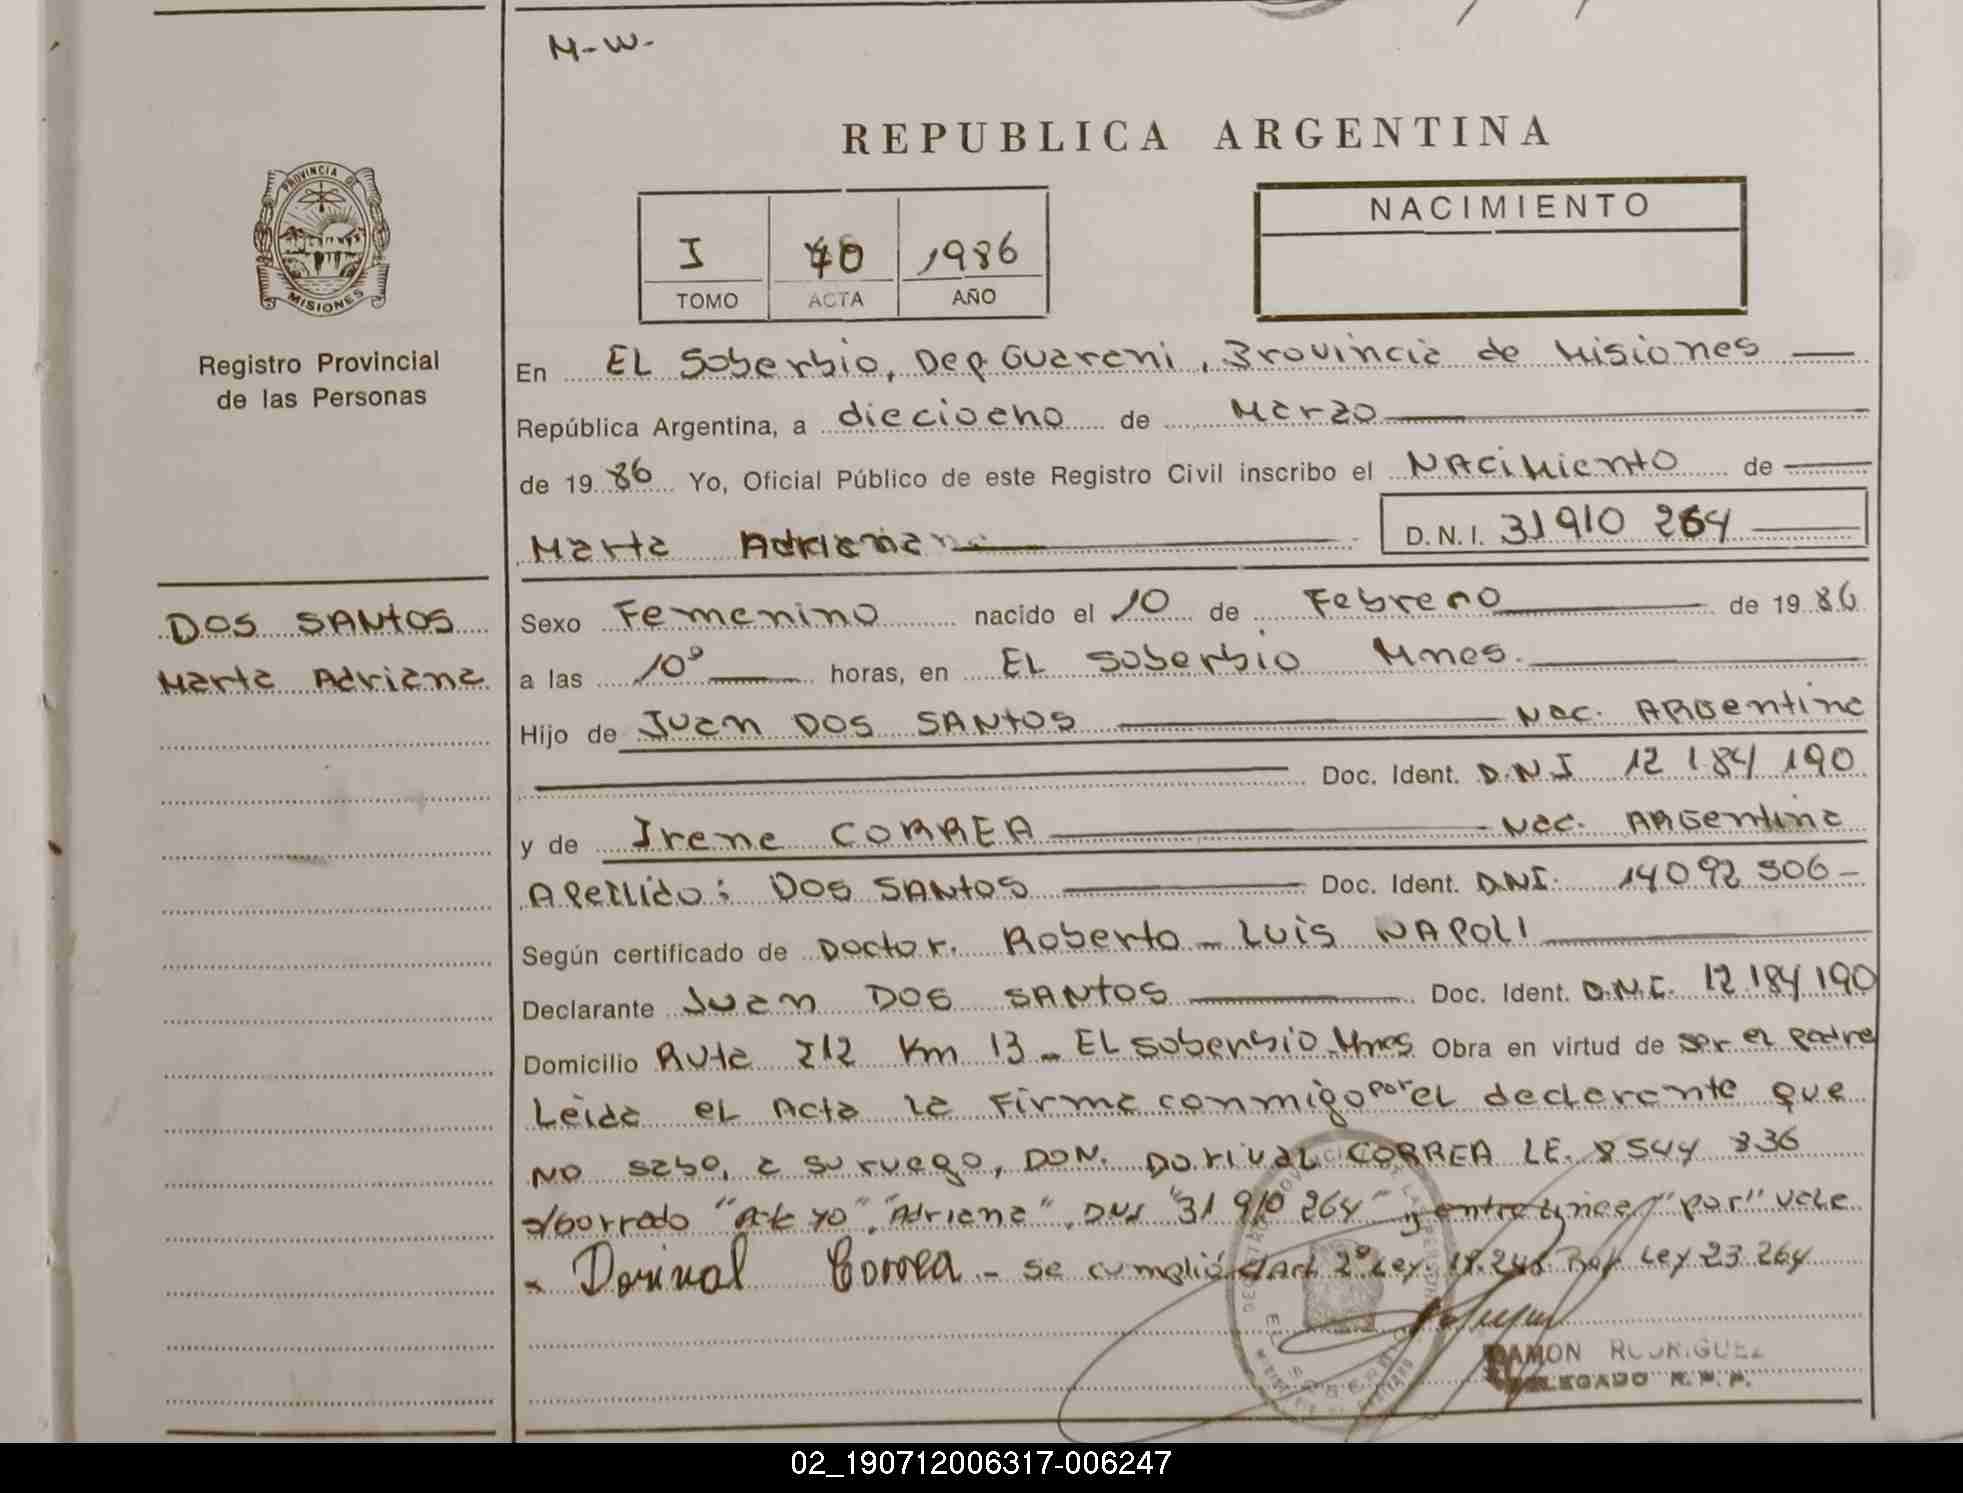 M-W-
REPUBLICA ARGENTINA
PROVINCIA DE
MISIONES
Registro Provincial
de las Personas
I 70 1986
TOMO ACTA AÑO
NACIMIENTO
En EL Soberbio, Dep. Guarani, Provincia de Misiones
República Argentina, a dieciocho de Marzo
de 1986 Yo, Oficial Público de este Registro Civil inscribo el NACimiento de
Marta Adriana
D.N.I. 31 910 264
DOS SANTOS
Marta Adriana
Sexo Femenino nacido el 10 de Febrero de 1986
a las 10º horas, en EL Soberbio Mnes.
Hijo de Juan DOS SANTOS Nac. ARGentina
Doc. Ident. D.N.I 12 184 190
y de Irene CORREA Nac. ARGentina
Apellido: DOS SANTOS Doc. Ident. D.N.I. 14 092 506-
Según certificado de Doctor. Roberto Luis NAPOLI
Declarante Juan DOS SANTOS Doc. Ident. D.N.I. 12 184 190
Domicilio Ruta 212 Km 13 - EL Soberbio. Mnes Obra en virtud de ser el padre
Leida el Acta la Firma conmigo por el declarante que
NO sabe, a su ruego, DON. Dorival CORREA LE. 8 544 836
s/borrado "Adriana". DNI "31 910 264" y entrelineas "por" vale
- Dorival Correa - se cumplió c/Art 2º Ley. 18.248 Ley 23.264
RAMON RODRIGUEZ
DELEGADO R.P.P.
02_190712006317-006247